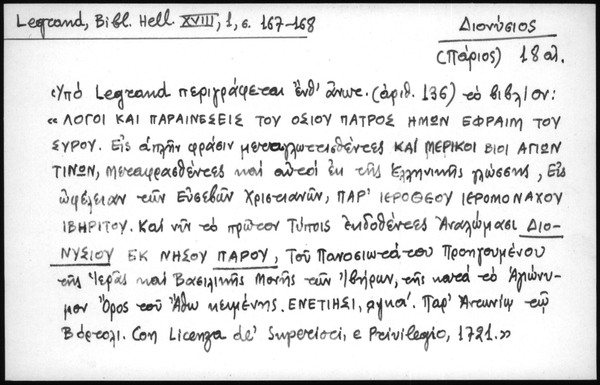 Legrand, Bibl. Hell. XVIII, 1, σ. 167-168
Διονύσιος
(Πάριος) 18 αι.
«Ὑπό Legrand περιγράφεται ἔνθ' ἄνωτ. (ἀριθ. 136) τό βιβλίον:
«ΛΟΓΟΙ ΚΑΙ ΠΑΡΑΙΝΕΣΕΙΣ ΤΟΥ ΟΣΙΟΥ ΠΑΤΡΟΣ ΗΜΩΝ ΕΦΡΑΙΜ ΤΟΥ
ΣΥΡΟΥ. Εἰς ἁπλῆν φράσιν μεταγλωττισθέντες ΚΑΙ ΜΕΡΙΚΟΙ ΒΙΟΙ ΑΓΙΩΝ
ΤΙΝΩΝ, μεταφρασθέντες καί αὐτοί ἐκ τῆς Ἑλληνικῆς γλώσσης, Εἰς
ὠφέλειαν τῶν Εὐσεβῶν Χριστιανῶν, ΠΑΡ' ΙΕΡΟΘΕΟΥ ΙΕΡΟΜΟΝΑΧΟΥ
ΙΒΗΡΙΤΟΥ. Καί νῦν τό πρῶτον Τύποις ἐκδοθέντες Ἀναλώμασι ΔΙΟ-
ΝΥΣΙΟΥ ΕΚ ΝΗΣΟΥ ΠΑΡΟΥ, Τοῦ Πανοσιωτάτου Προηγουμένου
τῆς Ἱερᾶς καί Βασιλικῆς Μονῆς τῶν Ἰβήρων, τῆς κατά τό Ἁγιώνυ-
μον Ὄρος τοῦ Ἄθω κειμένης. ΕΝΕΤΙΗΣΙ, αψκα'. Παρ' Ἀντωνίῳ τῷ
Βόρτολι. Con Licenza de' Superiori, e Privilegio, 1721.»